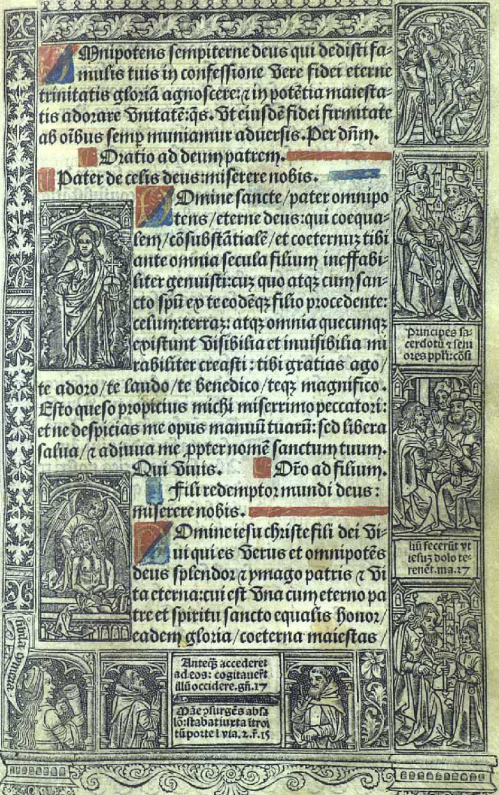 Omnipotens sempiterne deus qui dedisti fa-
mulis tuis in confessione Vere fidei eterne
trinitatis gloriā agnoscere: ⁊ in potētia maiesta-
tis adorare Vnitatē: q̄s. Vt eiusdē fidei firmitate
ab oībus semp̄ muniamur aduersis. Per dn̄m.
Oratio ad deum patrem.
Pater de celis deus: miserere nobis.
Domine sancte / pater omnipo
tens / eterne deus: qui coequa-
lem / cōsubstātialē / et coeternuz tibi
ante omnia secula filium ineffabi-
liter genuisti: cuz quo atqȝ cum san-
cto spū ex te eodēqȝ filio procedente:
celum: terraz: atqȝ omnia quecunqȝ
existunt Visibilia et inuisibilia mi
rabiliter creasti: tibi gratias ago /
te adoro / te laudo / te benedico / teqȝ magnifico.
Esto queso propicius michi miserrimo peccatori:
et ne despicias me opus manuū tuarū: sed libera
salua / ⁊ adiuua me ꝓpter nomē sanctum tuum.
Qui Viuis. Or̄o ad filium.
Fili redemptor mundi deus:
miserere nobis.
Domine iesu christe fili dei Vi-
ui qui es Verus et omnipotēs
deus splendor ⁊ ymago patris ⁊ Vi
ta eterna: cui est Vna cum eterno pa
tre et spiritu sancto equalis honor
eadem gloria / coeterna maiestas /
Principes sa-
cerdotū ⁊ seni
ores ppl̄i: cōsi
liū fecerūt vt
iesuȝ dolo te-
renēt. ma. 17
Anteqȝ accederet
ad eos: cogitauerūt
illū occidere. gn̄. 17
Māe ↄsurgēs absa
lō: stabat iuxta ītroi
tū porte ī via. 2. r̄. 15